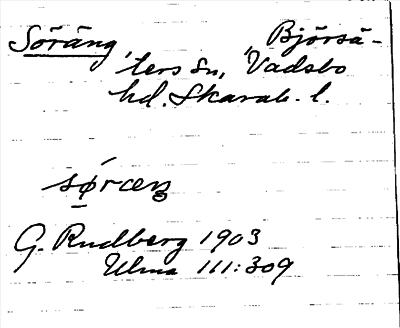 Söräng, Björsä-
ters sn, Vadsbo
hd. Skarab. l.
sǿræŋ
G. Rudberg 1903
Ulma 111:309